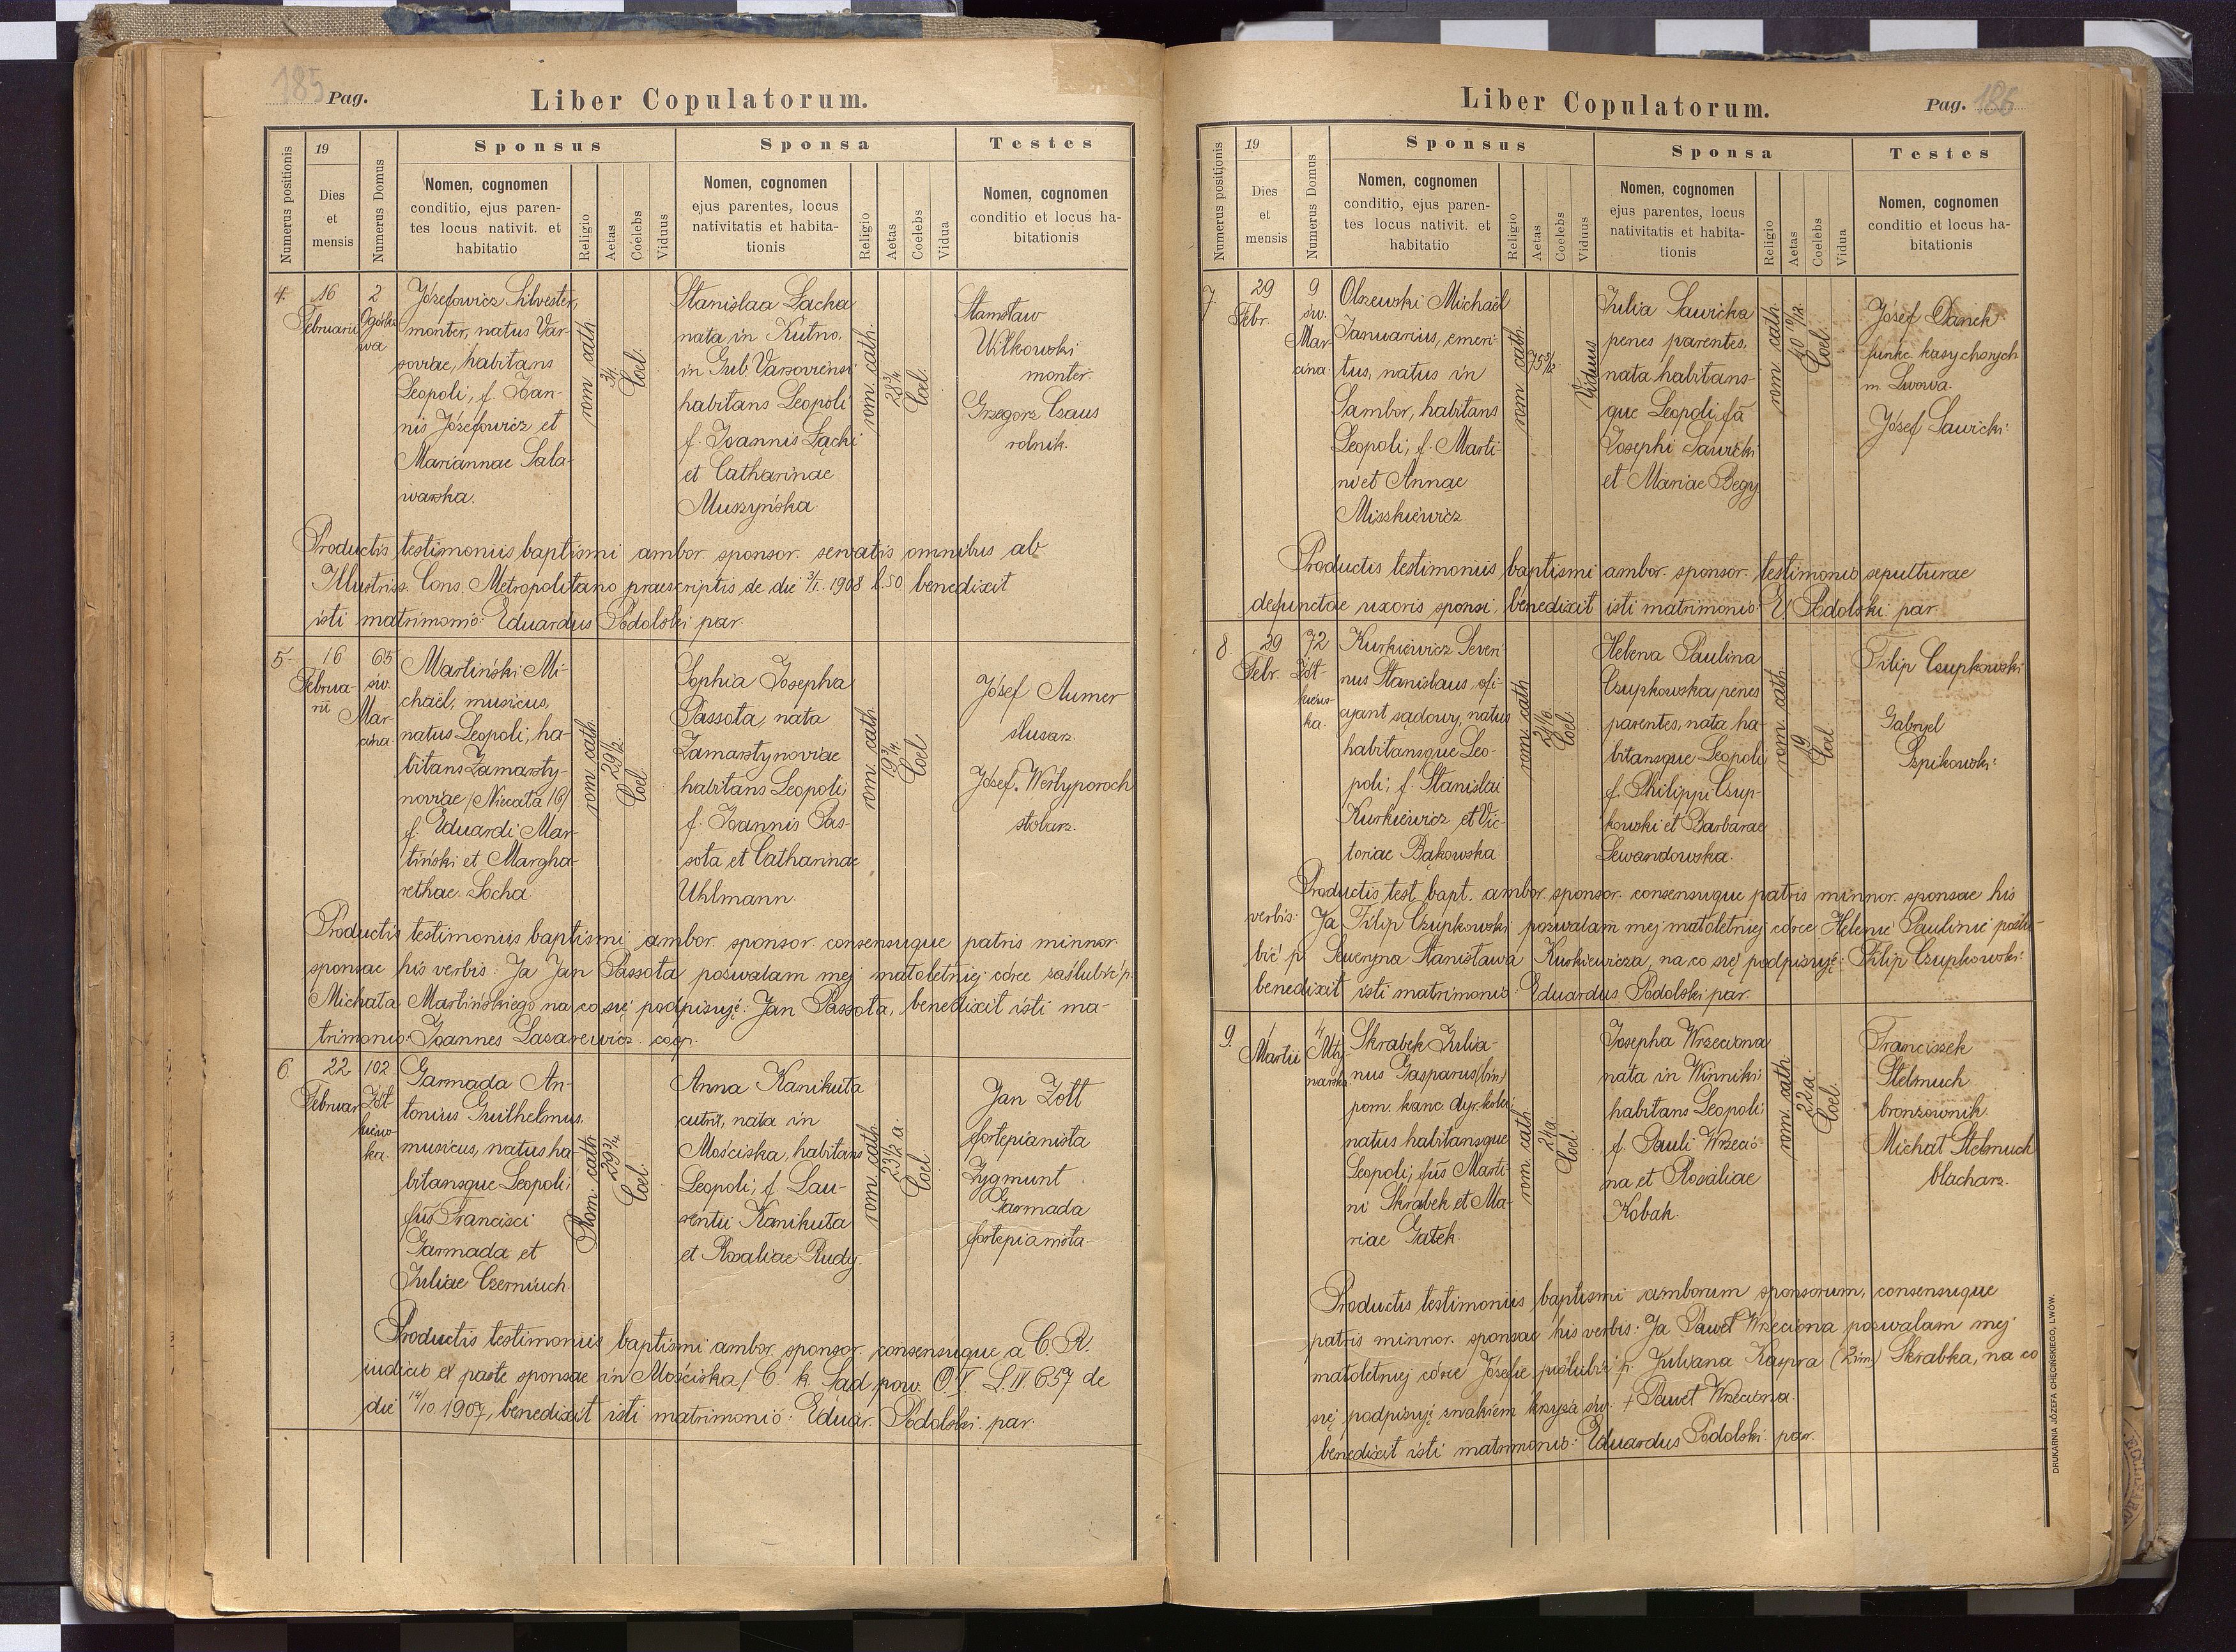 185 Pag.
Liber Copulatorum.
Numerus positionis
19
Dies
et
mensis
Numerus Domus
Sponsus
Nomen, cognomen
conditio, ejus paren-
tes locus nativit. et
habitatio
Religio
Aetas
Coelebs
Viduus
Sponsa
Nomen, cognomen
ejus parentes, locus
nativitatis et habita-
tionis
Religio
Aetas
Coelebs
Vidua
Testes
Nomen, cognomen
conditio et locus ha-
bitationis
4.
16
Februarii
2
Ogórko
wa
Józefowicz Silvester,
monter, natus Var-
soviae, habitans
Leopoli, f. Joan-
nis Józefowicz et
Mariannae Sala-
warska.
rom. cath.
Coel.
Stanislaa Łacka
nata in Kutno,
in Gub. Varsoviensi
habitans Leopoli
f. Joannis Łącki
et Catharinae
Muszyńska
rom. cath.
23 3/4
Coel.
Stanisław
Witkowski
monter.
Grzegorz Czaus
rolnik.
Productis testimoniis baptismi ambor. sponsor. servatis omnibus ab
Illustriss. Cons. Metropolitano praescriptis de die 3/I. 1908 l. 50 benedixit
isti matrimonio: Eduardus Podolski par.
5.
16
Februa-
rii
65
św.
Mar-
cina.
Martiński Mi-
chaël, musicus,
natus Leopoli, ha-
bitans Zamarsty-
noviae /Niecała 16/
f. Eduardi Mar-
tiński et Margha-
rethae Socha
rom. cath.
29 1/2.
Coel.
Sophia Josepha
Passota, nata
Zamarstynoviae
habitans Leopoli;
f. Joannis Pas-
sota et Catharinae
Uhlmann.
rom. cath.
19 3/4.
Coel
Józef Aumer
ślusarz.
Józef Wertyporoch
stolarz.
Productis testimoniis baptismi ambor. sponsor. consensuque patris minnor.
sponsae his verbis: Ja Jan Passota pozwalam mej małoletniej córce zaślubić p.
Michała Martińskiego na co się podpisuję: Jan Passota, benedixit isti ma-
trimonio: Joannes Lazarewicz coop.
6.
22
Februar.
102
Żół-
kiews-
ka.
Garmada An-
tonius Guilhelmus,
musicus, natus ha-
bitansque Leopoli,
fus Francisci
Garmada et
Juliae Czerniuch.
Rom. cath.
29 3/4
Coel.
Anna Kanikuła
nata in
Mościska, habitans
Leopoli; f. Lau-
rentii Kanikuła
et Rosaliae Rudy.
rom. cath.
23 1/2 a.
Coel.
Jan Zott
fortepianista
Zygmunt
Garmada
fortepianista.
Productis testimoniis baptismi ambor. sponsor. consensuque a C. R.
judicio ex parte sponsae in Mościska/ C. k. Sąd pow. O. I. L. IV. 657 de
die 14/10. 1907, benedixit isti matrimonio: Eduar. Podolski par.
Liber Copulatorum.
Pag. 186
Numerus positionis
19
Dies
et
mensis
Numerus Domus
Sponsus
Nomen, cognomen
conditio, ejus paren-
tes locus nativit. et
habitatio
Religio
Aetas
Coelebs
Viduus
Sponsa
Nomen, cognomen
ejus parentes, locus
nativitatis et habita-
tionis
Religio
Aetas
Coelebs
Vidua
Testes
Nomen, cognomen
conditio et locus ha-
bitationis
7.
29
Febr.
9
św.
Mar-
cina
Olszewski Michaël
Januarius, emeri-
tus, natus in
Sambor, habitans
Leopoli; f. Marti-
ni et Annae
Miszkiewicz
rom. cath.
75 5/12
Viduus
Julia Sawicka
penes parentes,
nata habitans-
que Leopoli, fa
Josephi Sawicki
et Mariae Begy
rom. cath.
40 10/12.
Coel.
Józef Danek
funkc. kasy chorych
m. Lwowa.
Józef Sawicki.
Productis testimoniis baptismi ambor. sponsor. testimonio sepulturae
defunctae uxoris sponsi, benedixit isti matrimonio: E. Podolski par.
8.
29
Febr.
72
Żół-
kiews-
ka.
Kurkiewicz Severi-
nus Stanislaus, ofi-
cjant sądowy, natus
habitansque Leo-
poli; f. Stanislai
Kurkiewicz et Vic-
toriae Bakowska
rom. cath.
Coel.
Helena Paulina
Czupkowska, penes
parentes, nata ha-
bitansque Leopoli
f. Philippi Czup-
kowski et Barbarae
Lewandowska.
rom. cath.
19
Coel.
Filip Czupkowski
Gabryel
Pspikowski.
Productis test. bapt. ambor. sponsor. consensuque patris minnor. sponsae his
verbis: Ja Filip Czupkowski pozwalam mej małoletniej córce Helenie Paulinie poślu-
bić p. Seweryna Stanisława Kurkiewicza, na co się podpisuję: Filip Czupkowski.
benedixit isti matrimonio: Eduardus Podolski par.
9.
Martii
4
Mły-
narska
Skrabek Julia-
nus Gasparus (bin)
pom. kanc. dyr. kolei
natus habitansque
Leopoli, fus Marti-
ni Skrabek et Ma-
riae Gałek.
rom. cath.
24a.
Coel.
Josepha Wrzeciona
nata in Winniki
habitans Leopoli;
f. Pauli Wrzecio-
na et Rosaliae
Kobak.
rom. cath.
22a.
Coel.
Franciszek
Stelmuch
bronzownik.
Michał Stelmuch
blacharz.
Productis testimoniis baptismi amborum sponsorum, consensuque
patris minnor. sponsae his verbis: Ja Paweł Wrzeciona pozwalam mej
małoletniej córce Józefie poślubić p. Juliana Kaspra (2 im) Skrabka, na co
się podpisuję znakiem krzyża św: + Paweł Wrzeciona.
benedixit isti matrimonio: Eduardus Podolski par.
DRUKARNIA JÓZEFA CHĘCIŃSKIEGO, LWÓW.